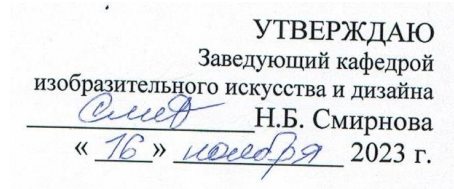 УТВЕРЖДАЮ
Заведующий кафедрой
изобразительного искусства и дизайна
Н.Б. Смирнова
« 16 » ноября 2023 г.